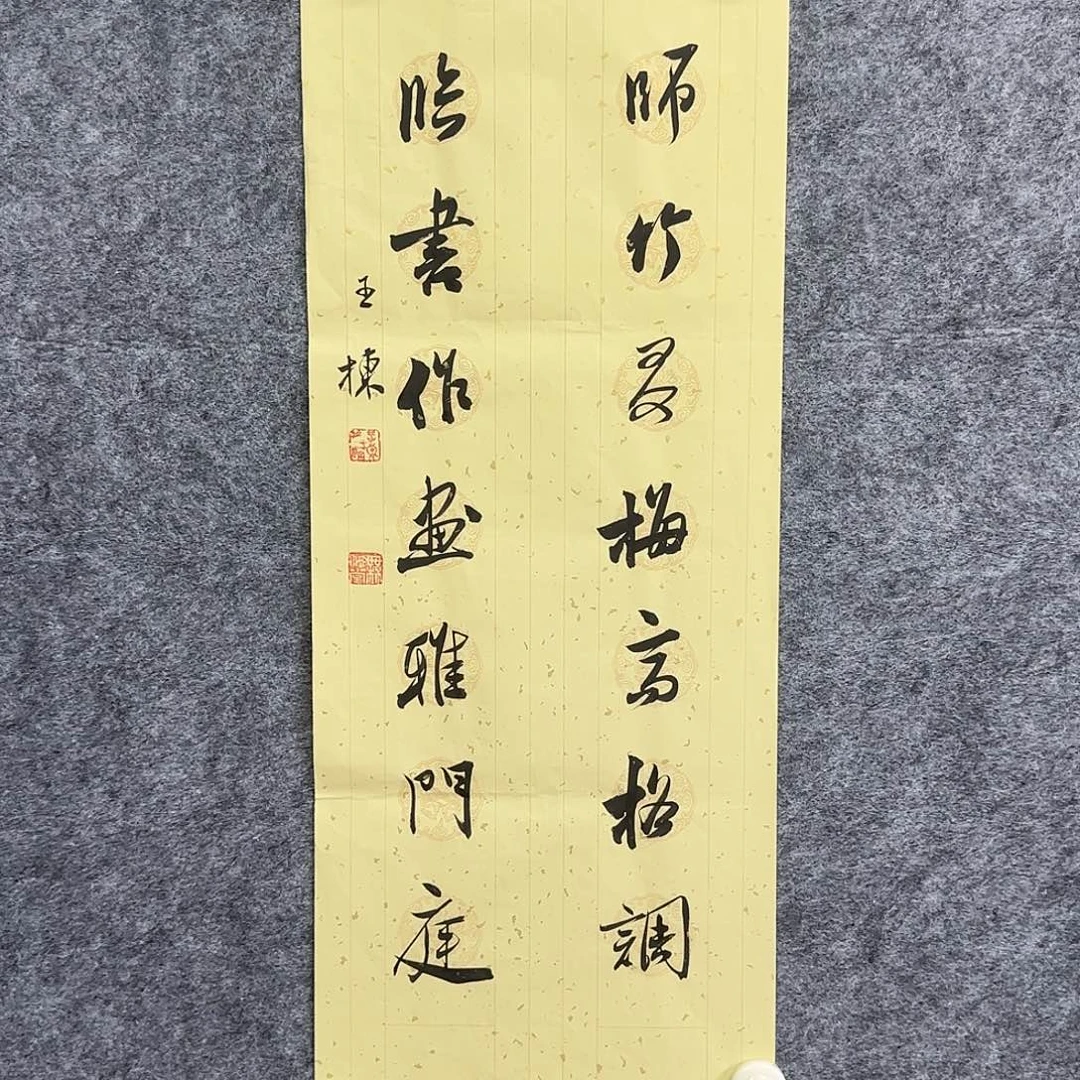 師竹友梅高格調
臨書作畫雅門庭
王棟